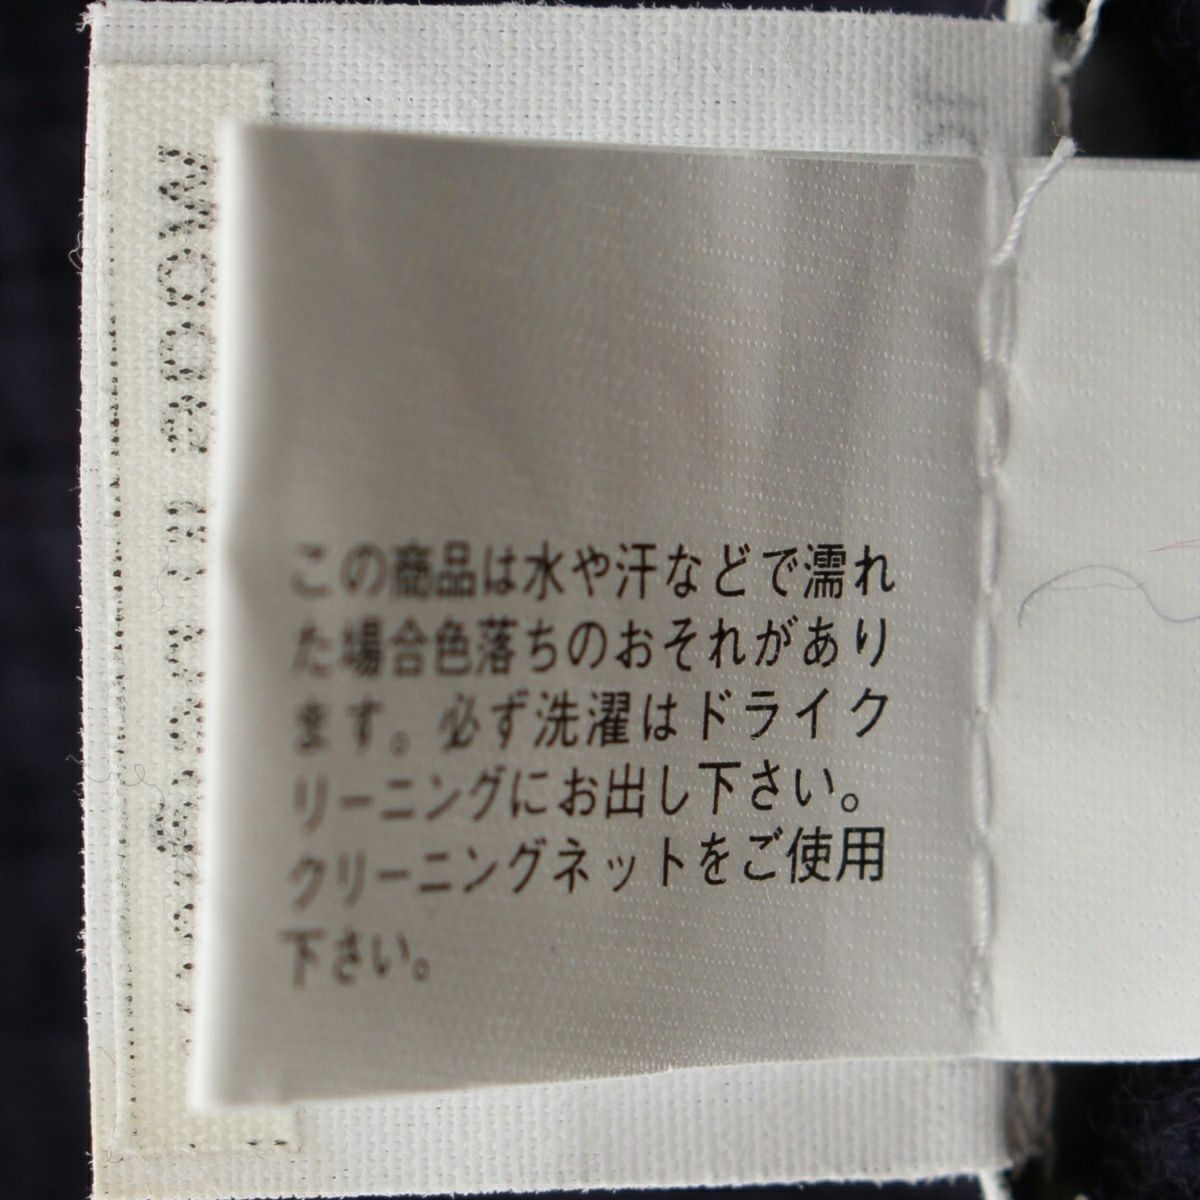 この商品は水や汗などで濡れ
た場合色落ちのおそれがあり
ます。必ず洗濯はドライク
リーニングにお出し下さい。
クリーニングネットをご使用
下さい。
Made in